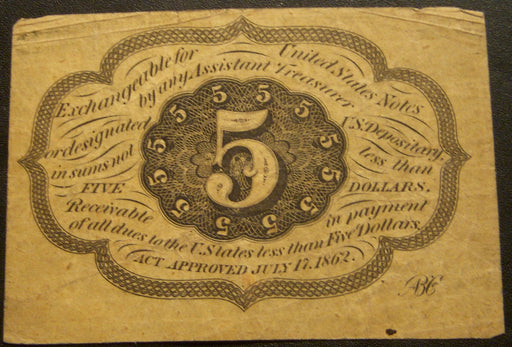 Exchangeable for United States Notes
by any Assistant Treasurer
or designated U.S. Depositary,
in sums not less than
FIVE DOLLARS.
Receivable in payment
of all dues to the U. States less than Five Dollars.
ACT APPROVED JULY 17, 1862.
5
5
5
5
5
5
5
5
5
5
5
5
ABCo